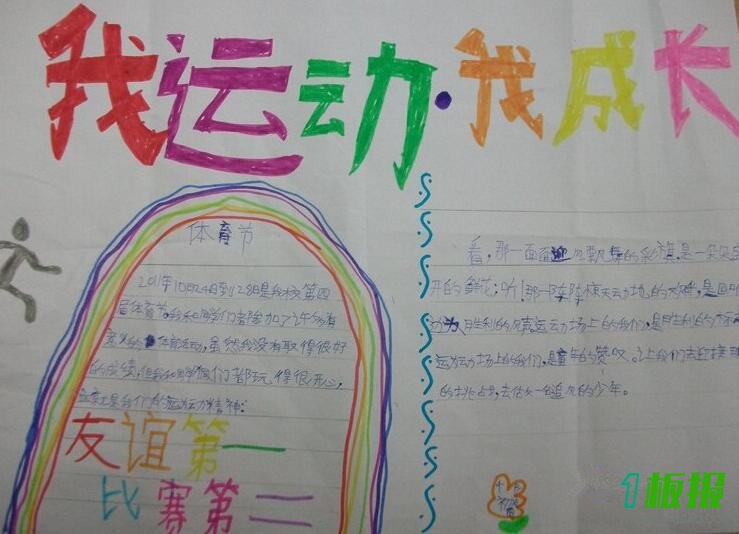 我运动·我成长
体育节
2011年10月24日到28日是我校第四
届体育节,我和同学们都参加了许多有
意义的体育运动,虽然我没有取得很好
的成绩,但我和同学们都玩得很开心,
这就是我们的运动精神。
友谊第一
比赛第二
看,那一面面迎风飘舞的彩旗,是一朵朵
开的鲜花;听!那一阵阵惊天动地的,是
为胜利的运动场上的我们,是胜利的
运动场上的我们,是童年的赞叹。让我们去迎接
的挑战,去做一名追风的少年。
1板报